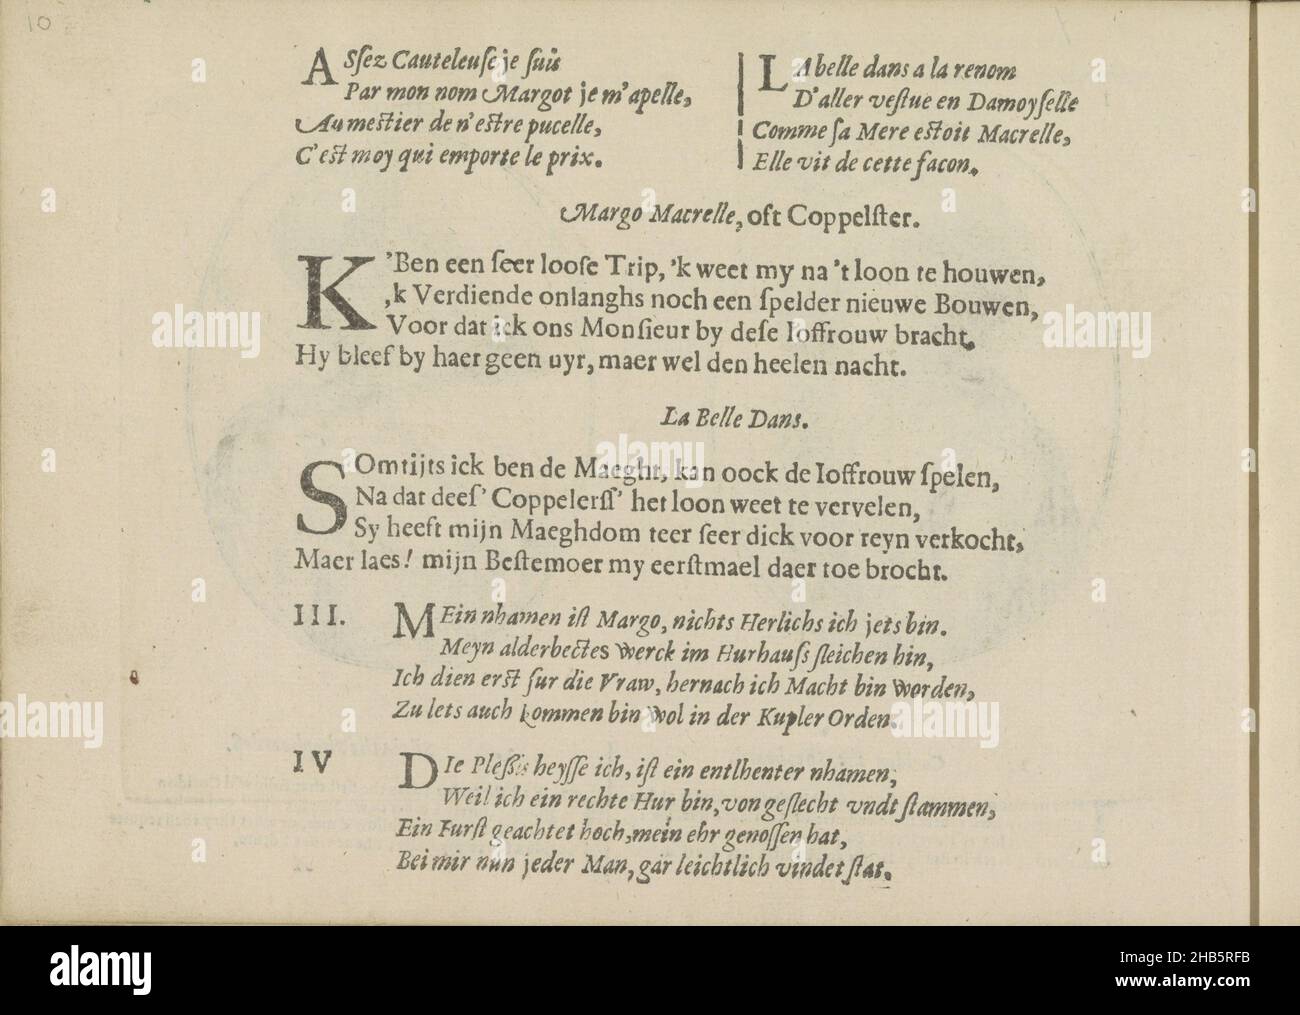 10
ASsez Cauteleuse je suis
Par mon nom Margot je m'apelle,
Au mestier de n'estre pucelle,
C'est moy qui emporte le prix.
LA belle dans a la renom
D'aller vestue en Damoyselle
Comme sa Mere estoit Macrelle,
Elle vit de cette facon.
Margo Macrelle, oft Coppelster.
K'Ben een seer loose Trip, 'k weet my na 't loon te houwen,
,k Verdiende onlanghs noch een spelder nieuwe Bouwen,
Voor dat ick ons Monsieur by dese Ioffrouw bracht,
Hy bleef by haer geen uyr, maer wel den heelen nacht.
La Belle Dans.
SOmtijts ick ben de Maeght, kan oock de Ioffrouw spelen,
Na dat dees' Coppelerss' het loon weet te vervelen,
Sy heeft mijn Maeghdom teer seer dick voor reyn verkocht,
Maer laes! mijn Bestemoer my eerstmael daer toe brocht.
III. MEin nhamen ist Margo, nichts Herlichs ich jets bin.
Meyn alderbectes werck im Hurhauss sleichen hin,
Ich dien erst fur die Vraw, hernach ich Macht bin worden,
Zu lets auch kommen bin wol in der Kupler Orden.
IV DIe Plessis heysse ich, ist ein entlhenter nhamen,
Weil ich ein rechte Hur bin, von geslecht vndt stammen,
Ein Furst geachtet hoch, mein ehr genossen hat,
Bei mir nun jeder Man, gar leichtlich vindet stat.
alamy
Image ID: 2HB5RFB
www.alamy.com